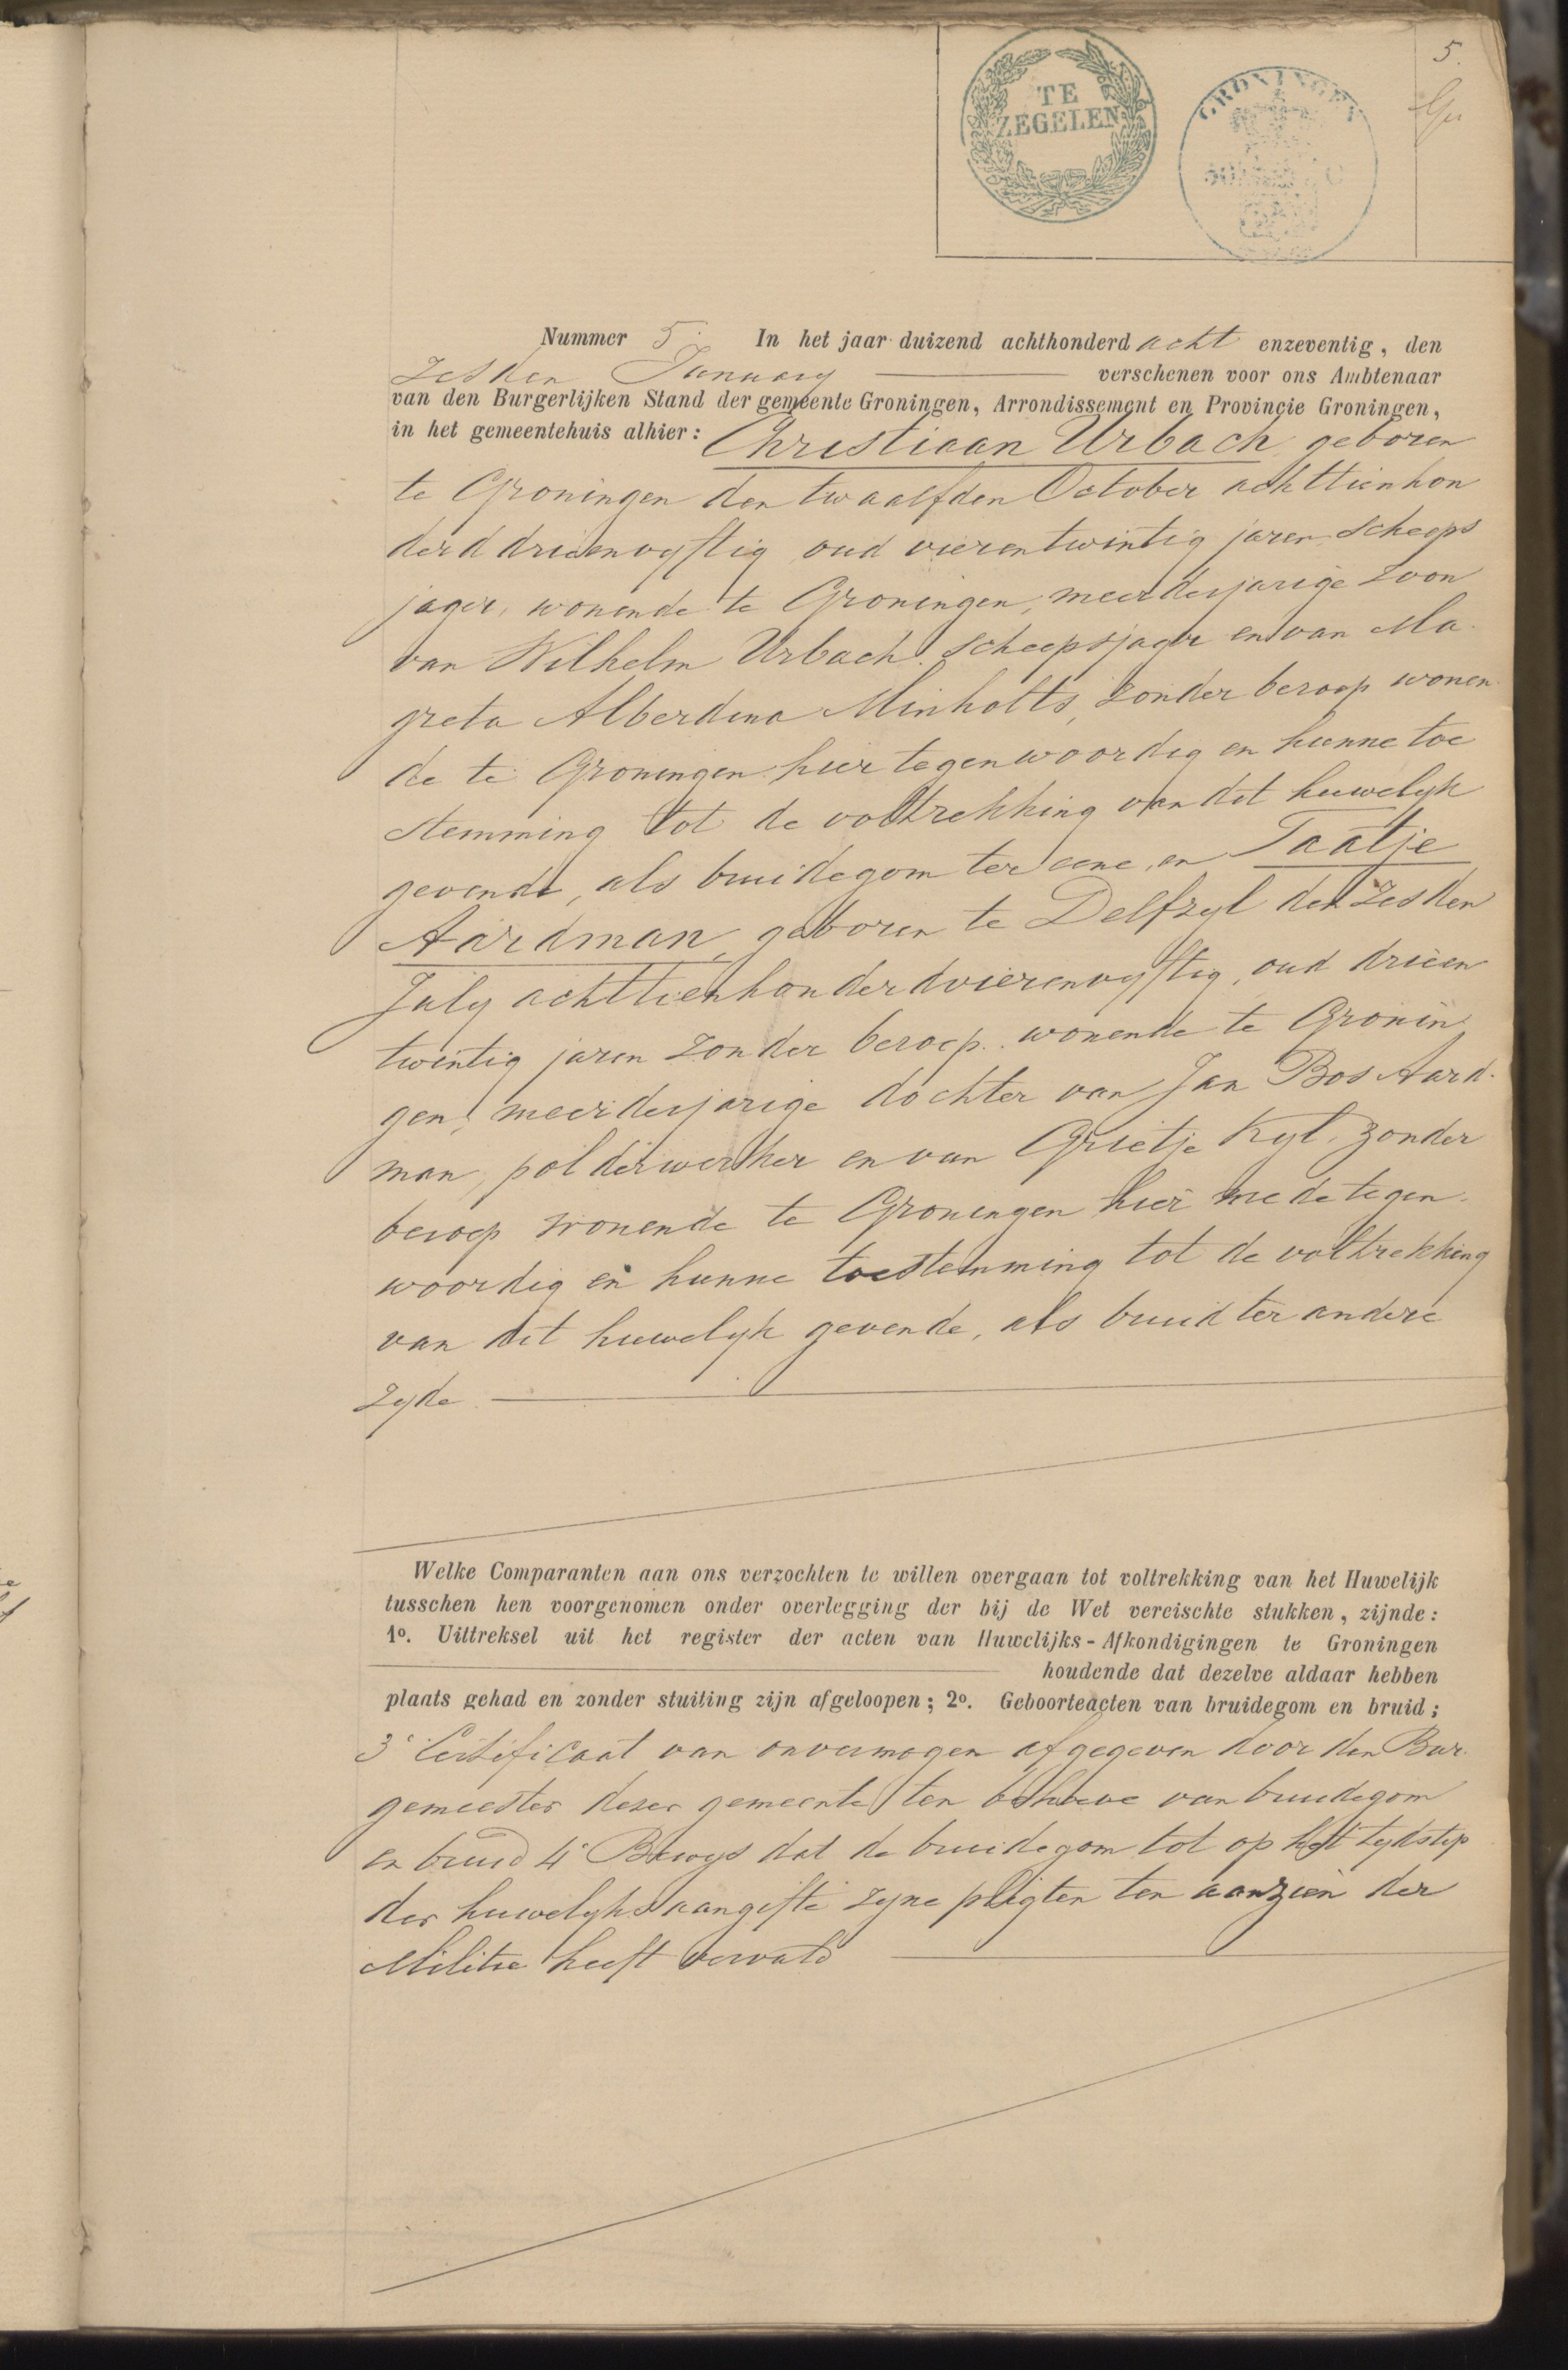 5.
TE
ZEGELEN
GRONINGEN
Nummer 5. In het jaar duizend achthonderd acht enzeventig, den
zesden January verschenen voor ons Ambtenaar
van den Burgerlijken Stand der gemeente Groningen, Arrondissement en Provincie Groningen,
in het gemeentehuis alhier: Christiaan Urbach, geboren
te Groningen den twaalfden October achttienhon
derd drieenvyftig, oud vierentwintig jaren, scheeps
jager, wonende te Groningen, meerderjarige zoon
van Wilhelm Urbach, scheepsjager en van Ma-
greta Alberdina Minholts, zonder beroep wonen
de te Groningen hier tegenwoordig en hunne toe
stemming tot de voltrekking van dit huwelyk
gevende, als bruidegom ter eene, en Taatje
Aardman, geboren te Delfzyl den zesden
July achttienhonderdvierenvyftig, oud drieen
twintig jaren zonder beroep, wonende te Gronin
gen, meerderjarige dochter van Jan Bos Aard-
man, polderwerker en van Grietje Kyl, zonder
beroep wonende te Groningen hier mede tegen-
woordig en hunne toestemming tot de voltrekking
van dit huwelyk gevende, als bruid ter andere
zyde
Welke Comparanten aan ons verzochten te willen overgaan tot voltrekking van het Huwelijk
tusschen hen voorgenomen onder overlegging der bij de Wet vereischte stukken, zijnde:
1o. Uittreksel uit het register der acten van Huwelijks-Afkondigingen te Groningen
houdende dat dezelve aldaar hebben
plaats gehad en zonder stuiting zijn afgeloopen; 2o. Geboorteacten van bruidegom en bruid;
3o Certificaat van onvermogen afgegeven door den Bur-
gemeester dezer gemeente ten behoeve van bruidegom
en bruid 4o Bewys dat de bruidegom tot op het tydstip
der huwelyksaangifte zyne pligten ten aanzien der
Militie heeft vervuld